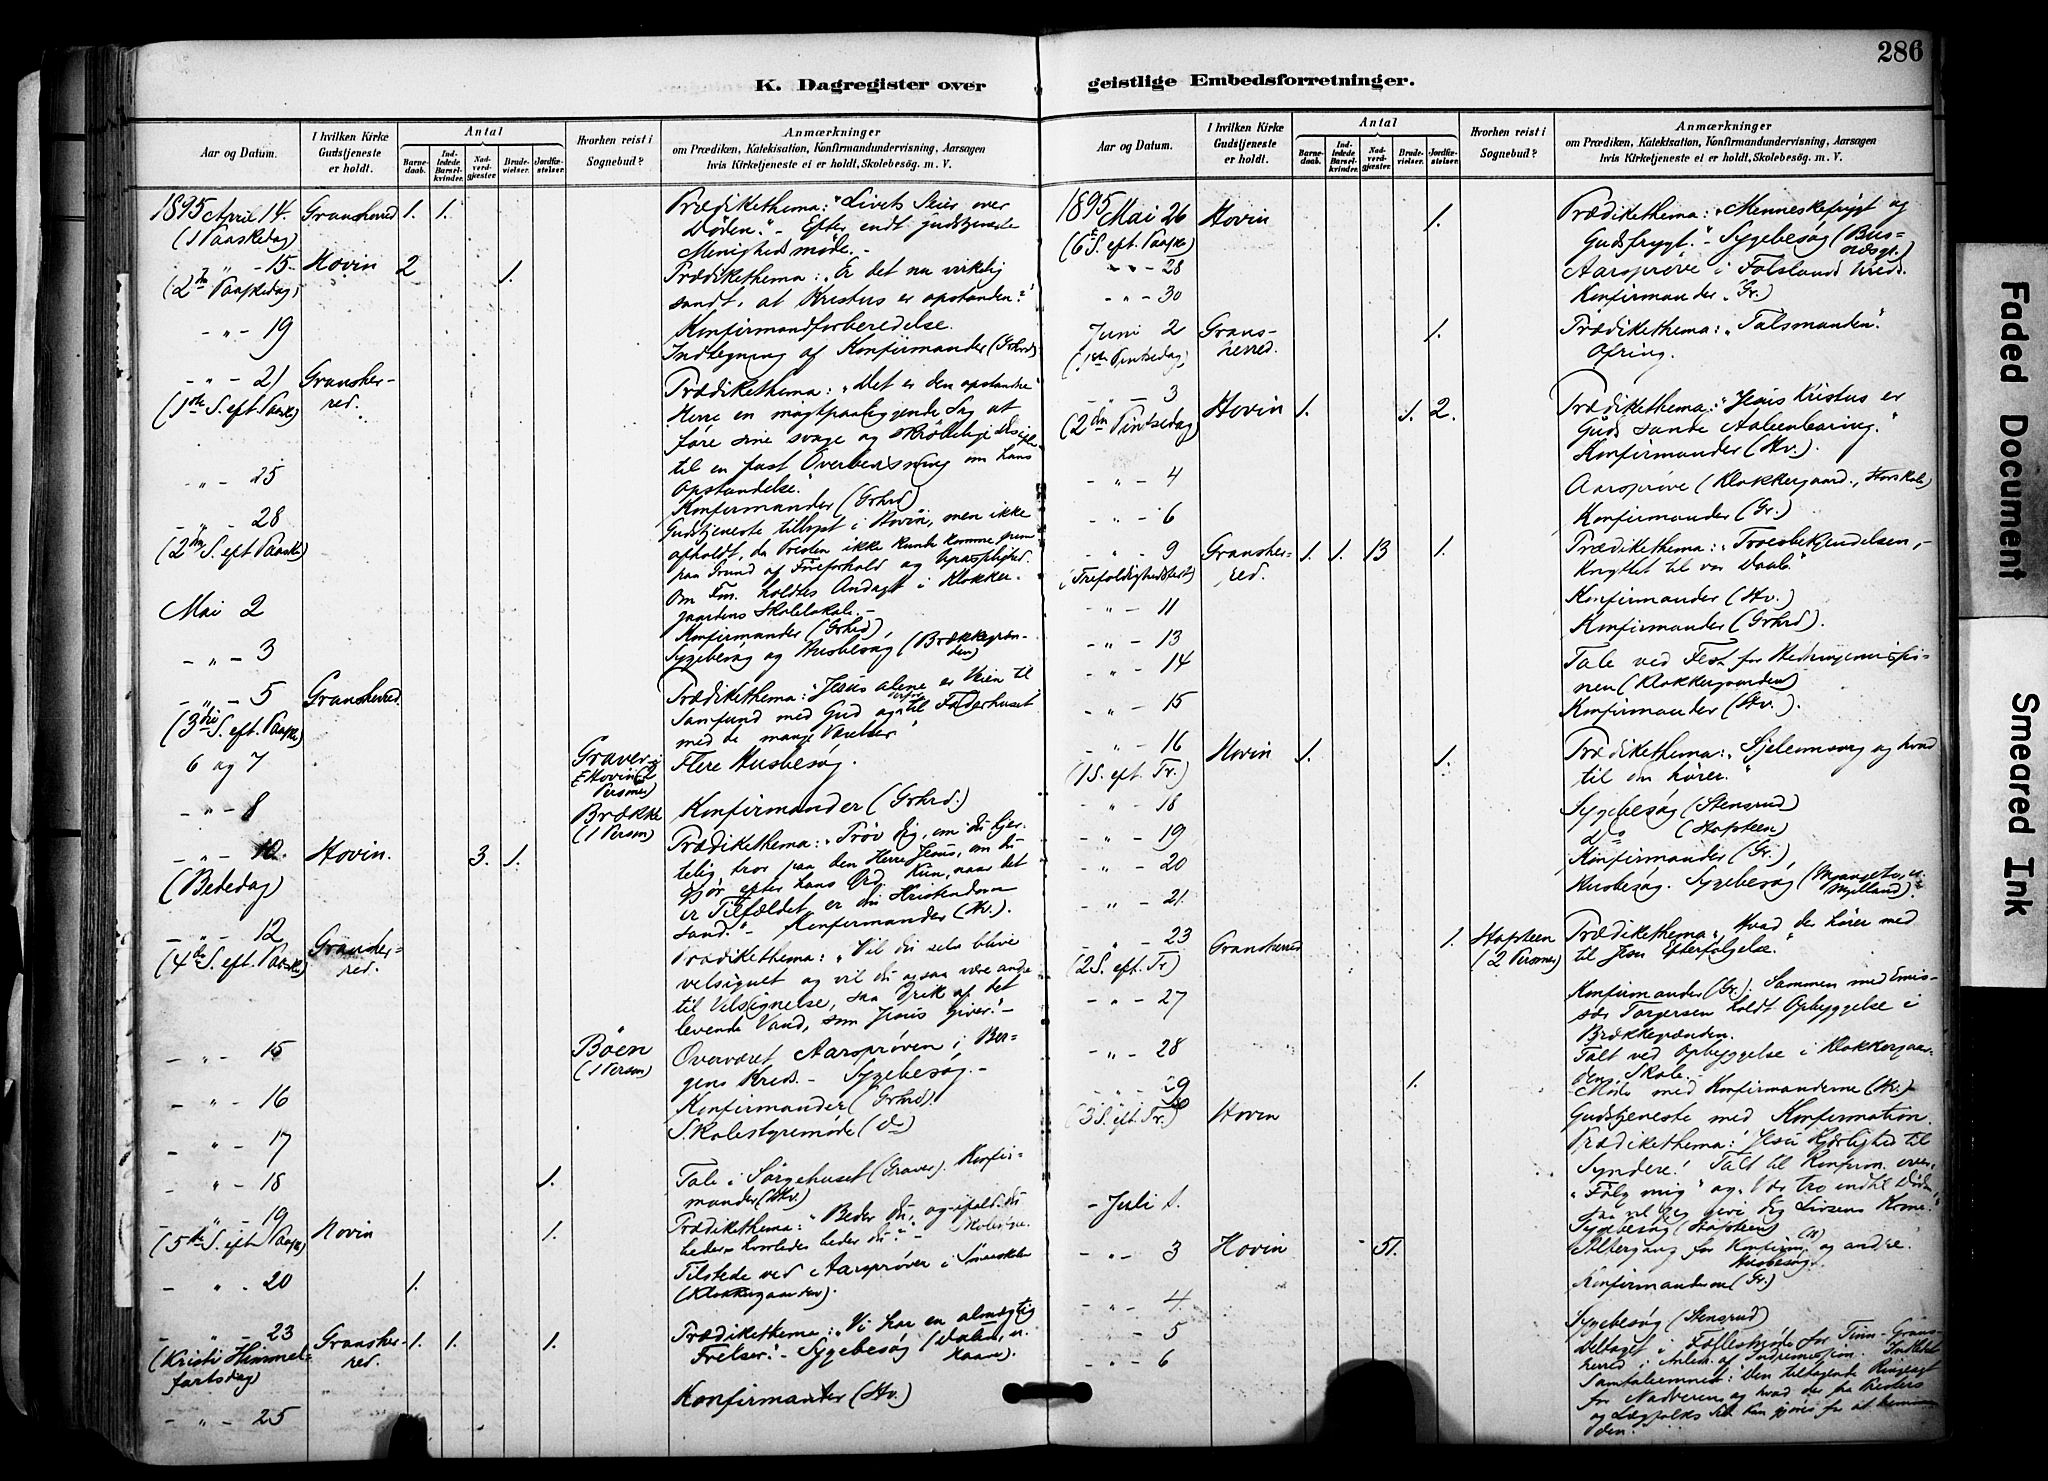 286
K. Dagregister over geistlige Embedsforretninger.
Aar og Datum.
I hvilken Kirke Gudstjeneste er holdt.
Antal
Barnedaab.
Indledede Barselkvinder.
Nadverdgjæster.
Brudevielser.
Jordfæstelser.
Hvorhen reist i Sognebud?
Anmærkninger
om Prædiken, Katekisation, Konfirmandundervisning, Aarsagen
hvis Kirketjeneste ei er holdt, Skolebesøg. m. V.
1895 April 14. Gransherred 1. 1. Prædikethema: "Livets Seier over
(1 Paaskedag) Døden." - Efter endt Gudstjeneste
Menighedsmøde. -
" - 15. Hovin 2 1. Prædikethema: "Er det nu virkelig
(2den Paaskedag) sandt, at Kristus er opstanden?"
- " - 19 Konfirmandforberedelse.
Indtegning af Konfirmander (Grhrd)
- " - 21 Gransherred. Prædikethema: "Det er den opstandne
(1ste S. eft. Paaske) Herre en magtpaaliggende Sag at
føre sine svage og skrøbelige Disciple
til en fast Overbevisning om hans
Opstandelse."
- " - 25 Konfirmander (Grhrd)
- " - 28 Gudstjeneste tillyst i Hovin, men ikke
(2den S. eft Paaske) afholdt, da Presten ikke kunde komme frem
paa Grund af Føreforhold og Upasselighed.
Om Fm. holdtes Andagt i Klokkergaardens Skolelokale. -
Mai 2 Konfirmander (Grhrd)
- " - 3 Sygebesøg og Husbesøg (Brækkegrænden)
- " - 5 Gransherred. Prædikethema: "Jesus alene er Veien til
(3die S. eft. Paaske) Samfund med Gud og derfor til Faderhuset
med de mange Værelser"
6 og 7 Graver i Hovin (2 Personer) Flere Husbesøg.
- " - 8 Brække (1 Person) Konfirmander (Grhrd.)
- " - 10. Hovin. 3. 1. Prædikethema: "Prøv dig, om du hjertelig
(Bededag) tror paa den Herre Jesus, om du
gjør efter hans Ord. Kun, naar det
er Tilfældet, er din Kristendom
sand." - Konfirmander (Hv.).
- " - 12 Gransherred. Prædikethema: "Vil du selv blive
(4de S. eft. Paaske) velsignet og vil du ogsaa være andre
til Velsignelse, saa Drik af det
levende Vand, som Jesus giver." -
- " - 15 Bøen (1 Person) Overværet Aarsprøven i Bergens Kreds. - Sygebesøg. -
- " - 16 Konfirmander (Grhrd).
- " - 17 Skolestyremøde (do)
- " - 18 1. Tale i Sørgehuset (Graver). Konfirmander (Hv.)
- " - 19 Hovin 1. Prædikethema: "Beder du, og ifald du
(5te S. eft Paaske) beder, hvorledes beder du?" -
- " - 20 1. Tilstede ved Aarsprøver i Smaaskolen
(Klokkergaarden).
- " - 23 Gransherred. 1. 1. 1. Prædikethema: "Vi har en almægtig
(Kristi Himmelfartsdag) Frelser." - Sygebesøg
- " - 25 Konfirmanter (Hv.)
Aar og Datum.
I hvilken Kirke Gudstjeneste er holdt.
Antal
Barnedaab.
Indledede Barselkvinder.
Nadverdgjæster.
Brudevielser.
Jordfæstelser.
Hvorhen reist i Sognebud?
Anmærkninger
om Prædiken, Katekisation, Konfirmandundervisning, Aarsagen
hvis Kirketjeneste ei er holdt, Skolebesøg. m. V.
1895 Mai 26 Hovin 1. Prædikethema: "Menneskefrygt og
(6te S. eft. Paaske) Gudsfrygt." - Sygebesøg
" - 28 Aarsprøve i Folslands Kreds.
- " - 30 Konfirmander (Gr.)
Juni 2 Gransherred. 1. Prædikethema: "Talsmanden".
(1ste Pintsedag) Ofring.
- " - 3 Hovin 1. 1. 2. Prædikethema: "Jesus Kristus er
(2den Pintsedag) Guds sande Aabenbaring."
Konfirmander (Hv.).
- " - 4 Aarsprøve (Klokkergaard., Storskole)
- " - 6 Konfirmander (Gr.)
- " - 9 Gransherred. 1. 1. 13 1. Prædikethema: "Troesbekjendelsen,
(Trefoldighedsfest) knyttet til vor Daab"
- " - 11 Konfirmander (Hv.)
- " - 13 Konfirmander (Grhrd).
- " - 14 Tale ved Fest for
(Klokkergaarden)
- " - 15 Konfirmander (Hv.).
- " - 16 Hovin 1. 1. Prædikethema: "Sjelesorg og hvad
(1 S. eft. Tr.) til den hører."
- " - 18 Sygebesøg (Stensrud)
- " - 19 do (Hapsteen)
- " - 20 Konfirmander (Gr.)
- " - 21. Husbesøg. Sygebesøg
- " - 23 Gransherred 1. Hapsteen (2 Personer) Prædikethema: "Hvad der hører med
(2 S. eft. Tr) til Jesu Efterfølgelse."
- " - 27 Konfirmander (Gr). Sammen med Emissær Torgersen holdt Opbyggelse i
Brækkegrænden.
- " - 28 Talt ved Opbyggelse i Klokkergaardens Skole. -
- " - 29 1. Møde med Konfirmanderne (Hv.)
- " - 30 (3 S. eft. Tr.) Hovin Gudstjeneste med Konfirmation.
Prædikethema: "Jesu Kjærlighed til
Syndere." Talt til Konfirm. over
"Følg mig" og "Vær tro indtil Døden,
saa vil jeg give dig Livsens Krone."
- Juli 1. Sygebesøg (Hapsteen)
- " - 3 Hovin 51. Altergang for Konfirm. (H) og andre.
Husbesøg.
- " - 4 Konfirmanderne (Gr.)
- " - 5 Sygebesøg (Stensrud)
- " - 6 Deltaget i Fællesmøde for Tinn-Gransherred i Anledn. af Indremission. Indledet
Samtaleemnet: Den tiltagende Ringeagt
for Nadveren, og hvad der fra Presters
og Lægfolks Side kan gjøres for at
den.
Faded Document
Smeared Ink